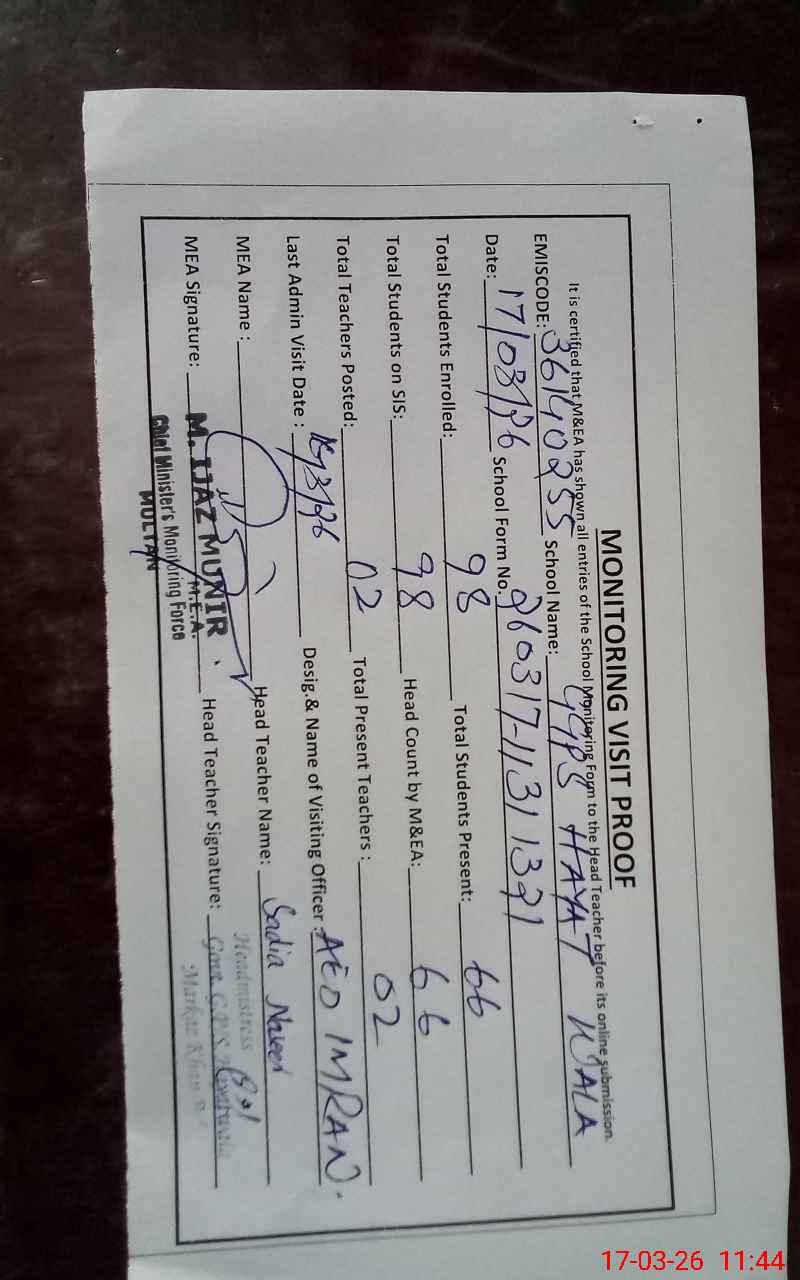 MONITORING VISIT PROOF
It is certified that M&EA has shown all entries of the School Monitoring Form to the Head Teacher before its online submission.
EMISCODE: 36140255 School Name: GGPS HAYAT WALA
Date: 17/03/26 School Form No. 260317-11311321
Total Students Enrolled: 98 Total Students Present: 66
Total Students on SIS: 98 Head Count by M&EA: 66
Total Teachers Posted: 02 Total Present Teachers : 02
Last Admin Visit Date : Desig.& Name of Visiting Officer : AEO IMRAN.
MEA Name : Head Teacher Name: Sadia
MEA Signature: Head Teacher Signature:
M. IJAZ MUNIR
M.E.A.
Chief Minister's Monitoring Force
MULTAN
Headmistress
Govt. G.P.S
Markaz
17-03-26 11:44